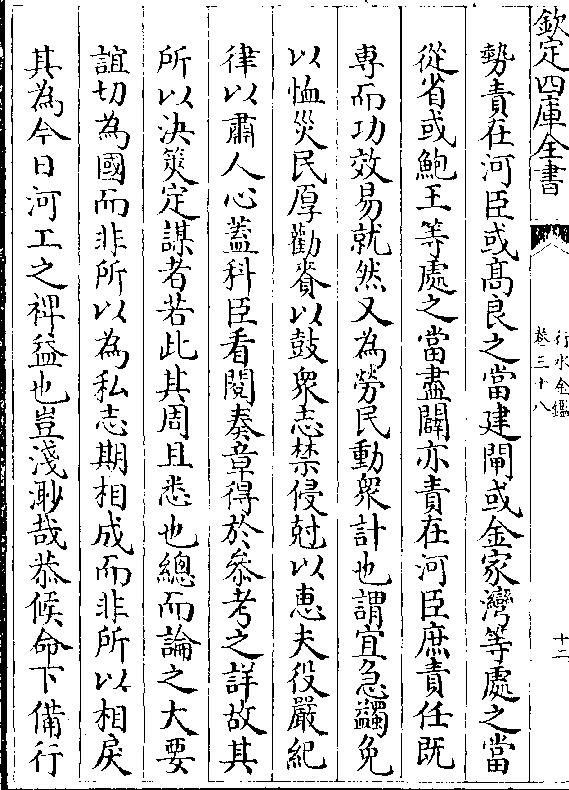 欽定四庫全書
行水金鑑
卷三十八
十二
勢責在河臣或髙良之當建閘或金家灣等處之當
從省或鮑王等處之當盡闢亦責在河臣庶責任既
専而功效易就然又為勞民動衆計也謂宜急蠲免
以恤災民厚勸賚以鼓衆志禁侵尅以惠夫役嚴紀
律以肅人心蓋科臣看閱奏章得於叅考之詳故其
所以決筴定謀者若此其周且悉也總而論之大要
誼切為國而非所以為私志期相成而非所以相戾
其為今日河工之裨益也豈淺尠哉恭候命下備行